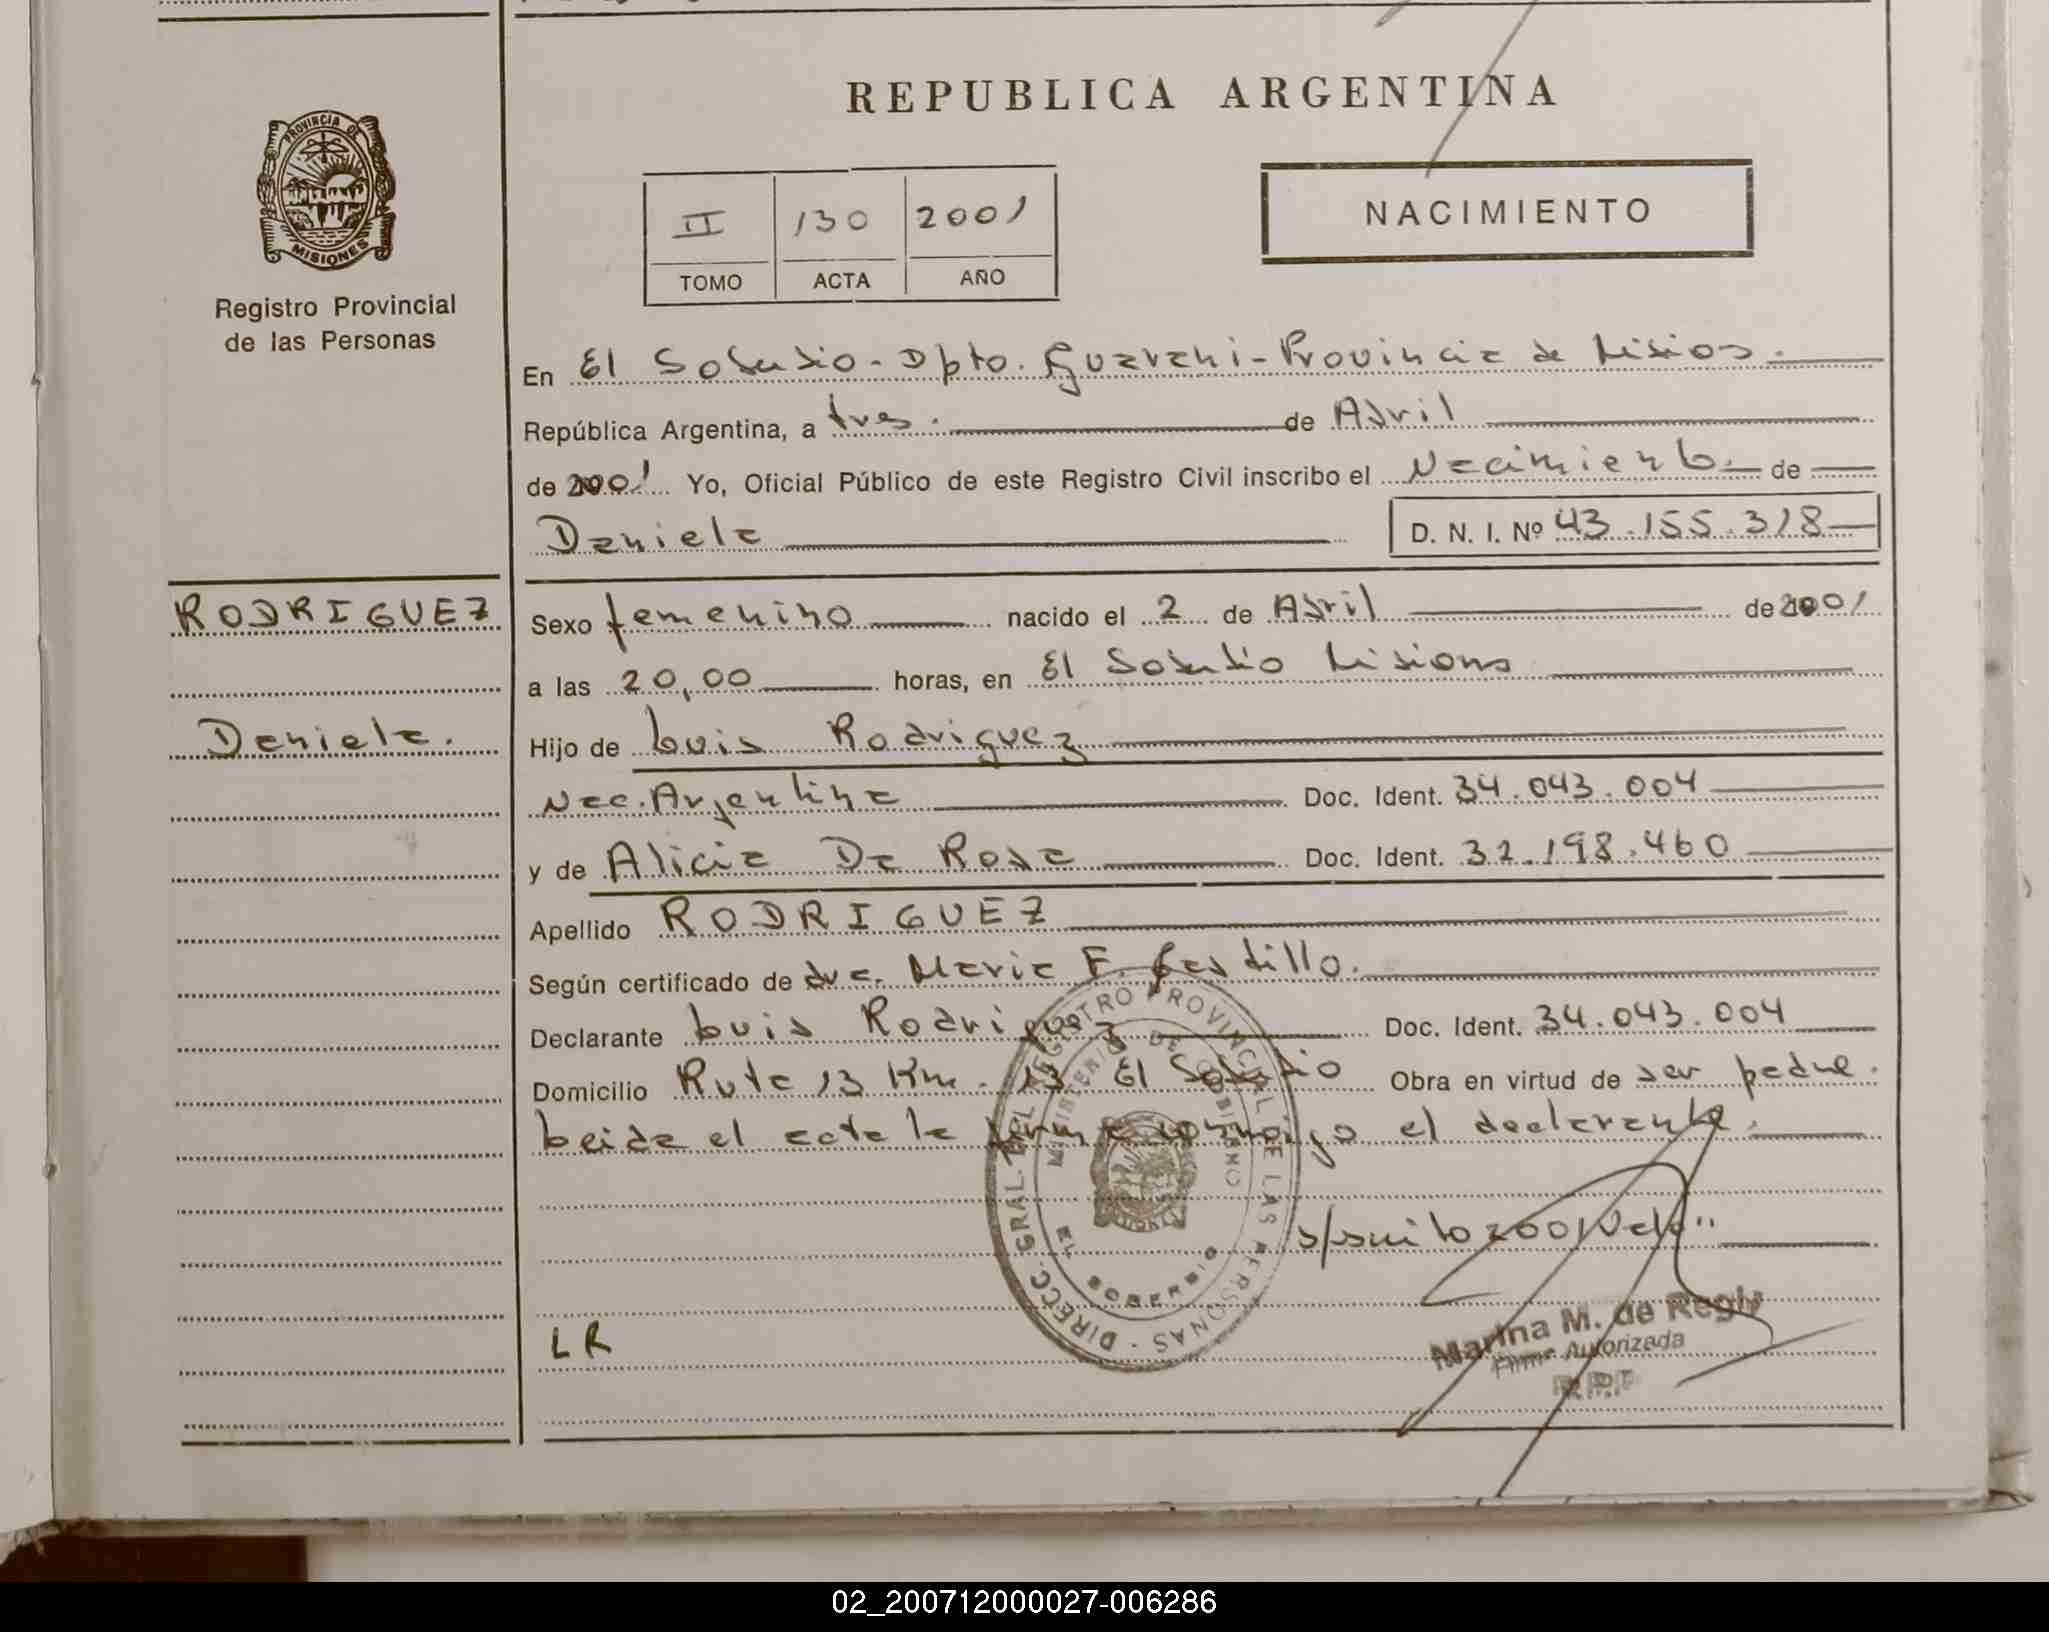 REPUBLICA ARGENTINA
PROVINCIA DE
MISIONES
Registro Provincial
de las Personas
II 130 2001
TOMO ACTA AÑO
NACIMIENTO
En El Soberbio - Dpto. Guarani - Provincia de Misios.
República Argentina, a tres. de Abril
de 2001 Yo, Oficial Público de este Registro Civil inscribo el Nacimiento. de
Daniela D. N. I. Nº 43.155.318
RODRIGUEZ
Daniela.
Sexo femenino nacido el 2 de Abril de 2001
a las 20,00 horas, en El Soberbio Misiones
Hijo de Luis Rodriguez
Nac. Argentina Doc. Ident. 34.043.004
y de Alicia Da Rosa Doc. Ident. 32.198.460
Apellido RODRIGUEZ
Según certificado de dra. Maria F. Castillo.
Declarante Luis Rodriguez Doc. Ident. 34.043.004
Domicilio Ruta 13 Km. 13 El Soberbio Obra en virtud de ser padre.
Leida el acta la firma conmigo el declarante.
2001 Vale"
DIRECC. GRAL. DEL REGISTRO PROVINCIAL DE LAS PERSONAS -
MINISTERIO DE GOBIERNO
EL SOBERBIO
LR
Marina M. de Regly
Firma Autorizada
R.P.P.
02_200712000027-006286